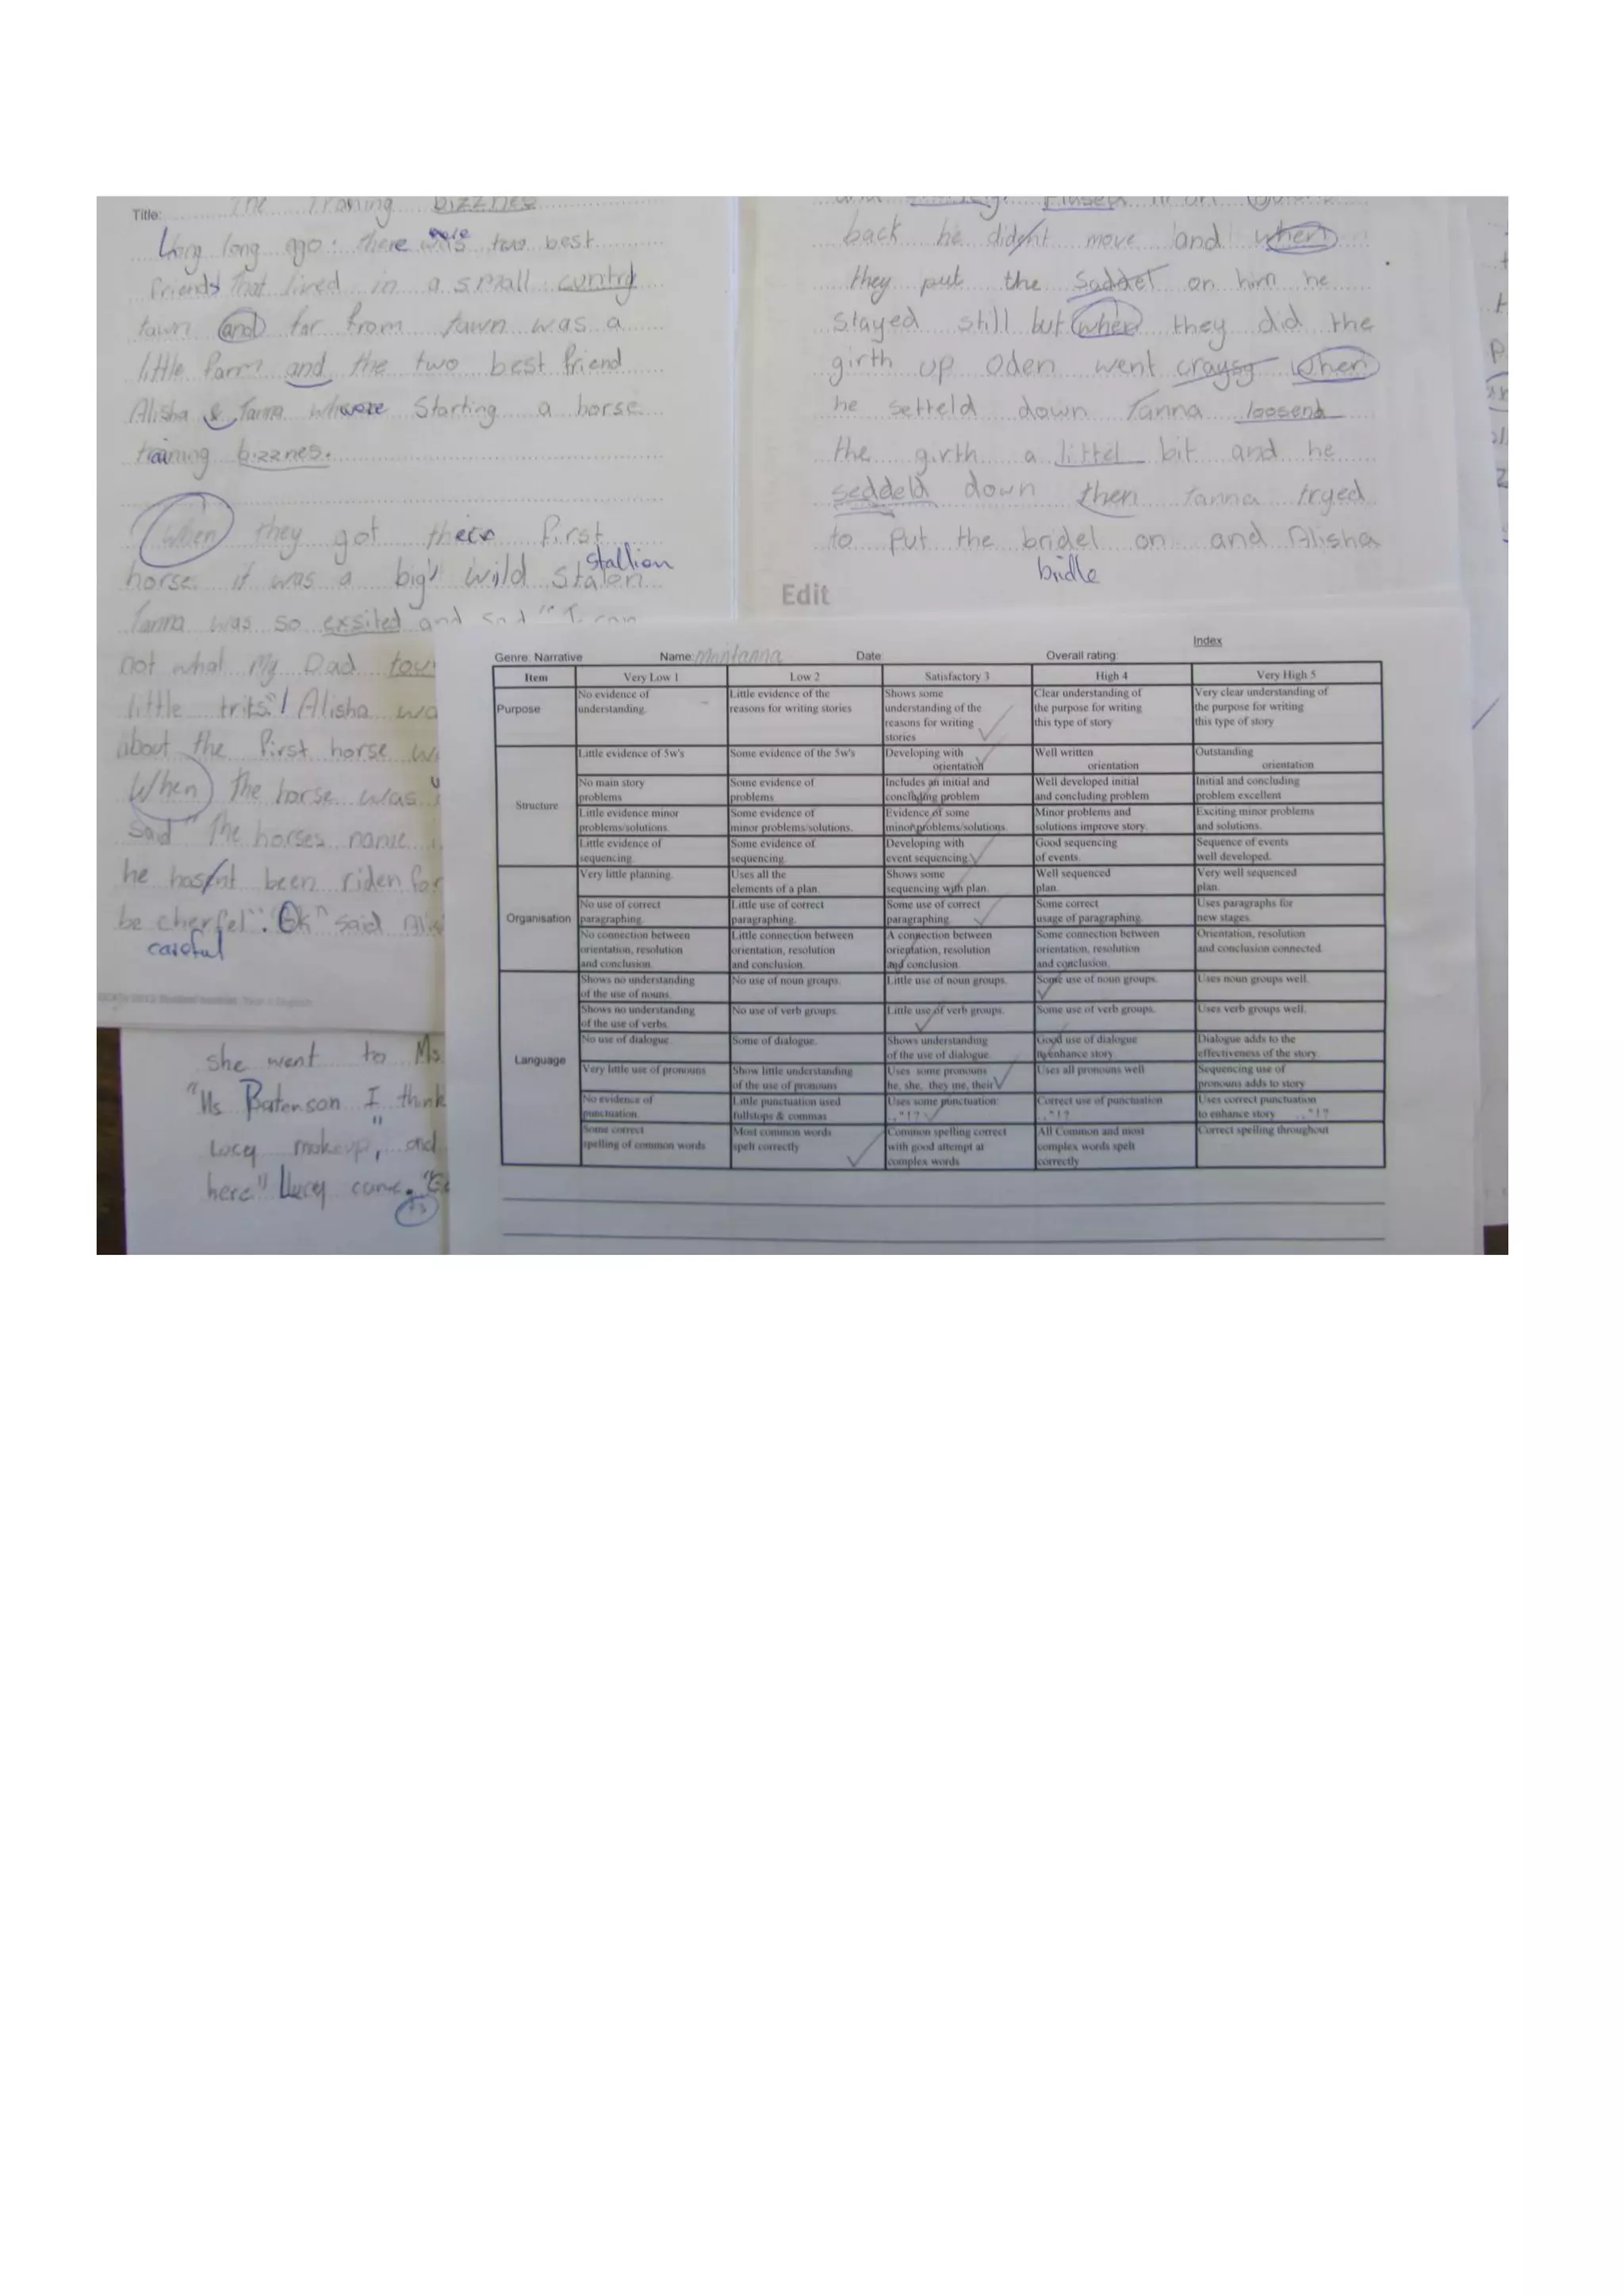 Title: The Traning bizznes
Long long ago. there were two best
friends that lived in a small cuntry
tawn and far from tawn was a
little farm and the two best friend
Alisha & Tanna were starting a horse
training bizznes.
When they got there first
horse it was a big wild stalen
stallion
Tanna was so exsited and
not what my Dad
little trits" Alisha
about the first horse
When the horse was
said "The horses name
he hasnt been riden for
be cherfel". "Ok" said
careful
she went to Ms
"Ms Batenson I think
Lucy makeup, and
here" Lucy came.
back he didn't move and when
they put the saddel on him he
stayed still but when they did the
girth up Oden went craysy when
he setteld down Tanna loosend
the girth a littel bit and he
seddeld down then Tanna tryed
to put the bridel on and Alisha
bridle
Edit
Index
Genre: Narrative Name: Montanna Date Overall rating:
Item Very Low 1 Low 2 Satisfactory 3 High 4 Very High 5
Purpose
No evidence of
understanding.
Little evidence of the
reasons for writing stories
Shows some
understanding of the
reasons for writing
stories
Clear understanding of
the purpose for writing
this type of story
Very clear understanding of
the purpose for writing
this type of story
Structure
Little evidence of 5w's
Some evidence of the 5w's
Developing with
orientation
Well written
orientation
Outstanding
orientation
No main story
problems
Some evidence of
problems
Includes an initial and
concluding problem
Well developed initial
and concluding problem
Initial and concluding
problem excellent
Little evidence minor
problems/solutions.
Some evidence of
minor problems/solutions.
Evidence of some
minor problems/solutions
Minor problems and
solutions improve story.
Exciting minor problems
and solutions.
Little evidence of
sequencing.
Some evidence of
sequencing.
Developing with
event sequencing
Good sequencing
of events.
Sequence of events
well developed.
Organisation
Very little planning.
Uses all the
elements of a plan.
Shows some
sequencing with plan.
Well sequenced
plan.
Very well sequenced
plan.
No use of correct
paragraphing.
Little use of correct
paragraphing.
Some use of correct
paragraphing.
Some correct
usage of paragraphing.
Uses paragraphs for
new stages.
No connection between
orientation, resolution
and conclusion.
Little connection between
orientation, resolution
and conclusion.
A connection between
orientation, resolution
and conclusion.
Some connection between
orientation, resolution
and conclusion.
Orientation, resolution
and conclusion connected.
Language
Shows no understanding
of the use of nouns.
No use of noun groups.
Little use of noun groups.
Some use of noun groups.
Uses noun groups well.
Shows no understanding
of the use of verbs.
No use of verb groups.
Little use of verb groups.
Some use of verb groups.
Uses verb groups well.
No use of dialogue.
Some of dialogue.
Shows understanding
of the use of dialogue.
Good use of dialogue
to enhance story.
Dialogue adds to the
effectiveness of the story.
Very little use of pronouns
Show little understanding
of the use of pronouns
Uses some pronouns
he, she, they me, their
Uses all pronouns well
Sequencing use of
pronouns adds to story
No evidence of
punctuation.
Little punctuation used
fullstops & commas
Uses some punctuation:
. , " ! ?
Correct use of punctuation
. , " ! ?
Uses correct punctuation
to enhance story . , " ! ?
Some correct
spelling of common words
Most common words
spelt correctly
Common spelling correct
with good attempt at
complex words
All Common and most
complex words spelt
correctly
Correct spelling throughout